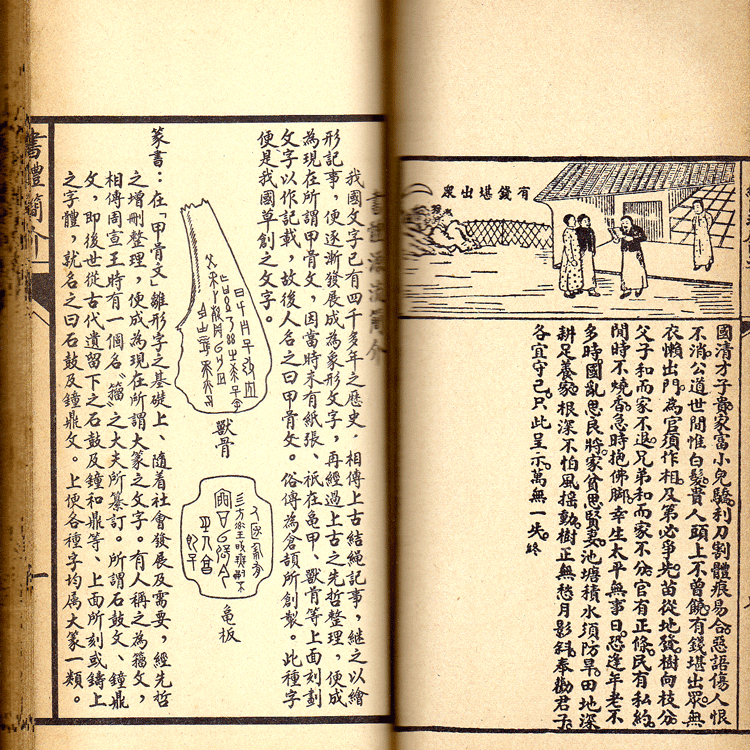 有錢堪出眾
國清才子貴。家富小兒驕。利刀割體痕易合。惡語傷人恨
不消。公道世間惟白髮。貴人頭上不曾饒。有錢堪出眾。無
衣懶出門。為官須作相。及第必爭先。苗從地發。樹向枝分。
父子和而家不退。兄弟和而家不分。官有正條。民有私約。
閒時不燒香。急時抱佛腳。幸生太平無事日。恐逢年老不
多時。國亂思良將。家貧思賢妻。池塘積水須防旱。田地深
耕足養家。根深不怕風搖動。樹正無愁月影斜。奉勸君子。
各宜守己。只此呈示。萬無一失。終
書體源流簡介
我國文字已有四千多年之歷史，相傳上古結繩記事，繼之以繪
形記事，便逐漸發展成為象形文字，再經過上古之先哲整理，便成
為現在所謂甲骨文，因當時未有紙張、祇在龟甲、獸骨等上面刻劃
文字以作記載，故後人名之曰甲骨文。俗傳為倉頡所創製。此種字
便是我國草創之文字。
獸骨
龟板
篆書：在「甲骨文」雛形字之基礎上、隨着社會發展及需要，經先哲
之增刪整理，便成為現在所謂大篆之文字。有人稱之為籀文，
相傳周宣王時有一個名“籀”之大夫所纂訂。所謂石鼓文、鐘鼎
文，即後世從古代遺留下之石鼓及鐘和鼎等、上面所刻或鑄上
之字體，就名之曰石鼓及鐘鼎文。上便各種字均属大篆一類。
書體簡介
一